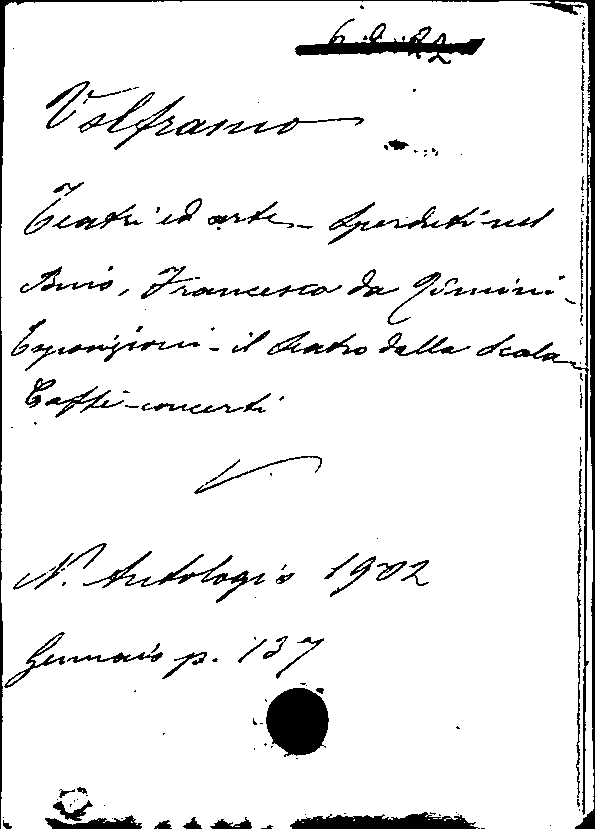 Valfranio
Teatri ed arte - Sperduti nel
Buio, Francesca da Rimini -
Esposizioni - il teatro della Scala -
Caffè-concerti
N. Antologia 1902
Gennaio p. 137